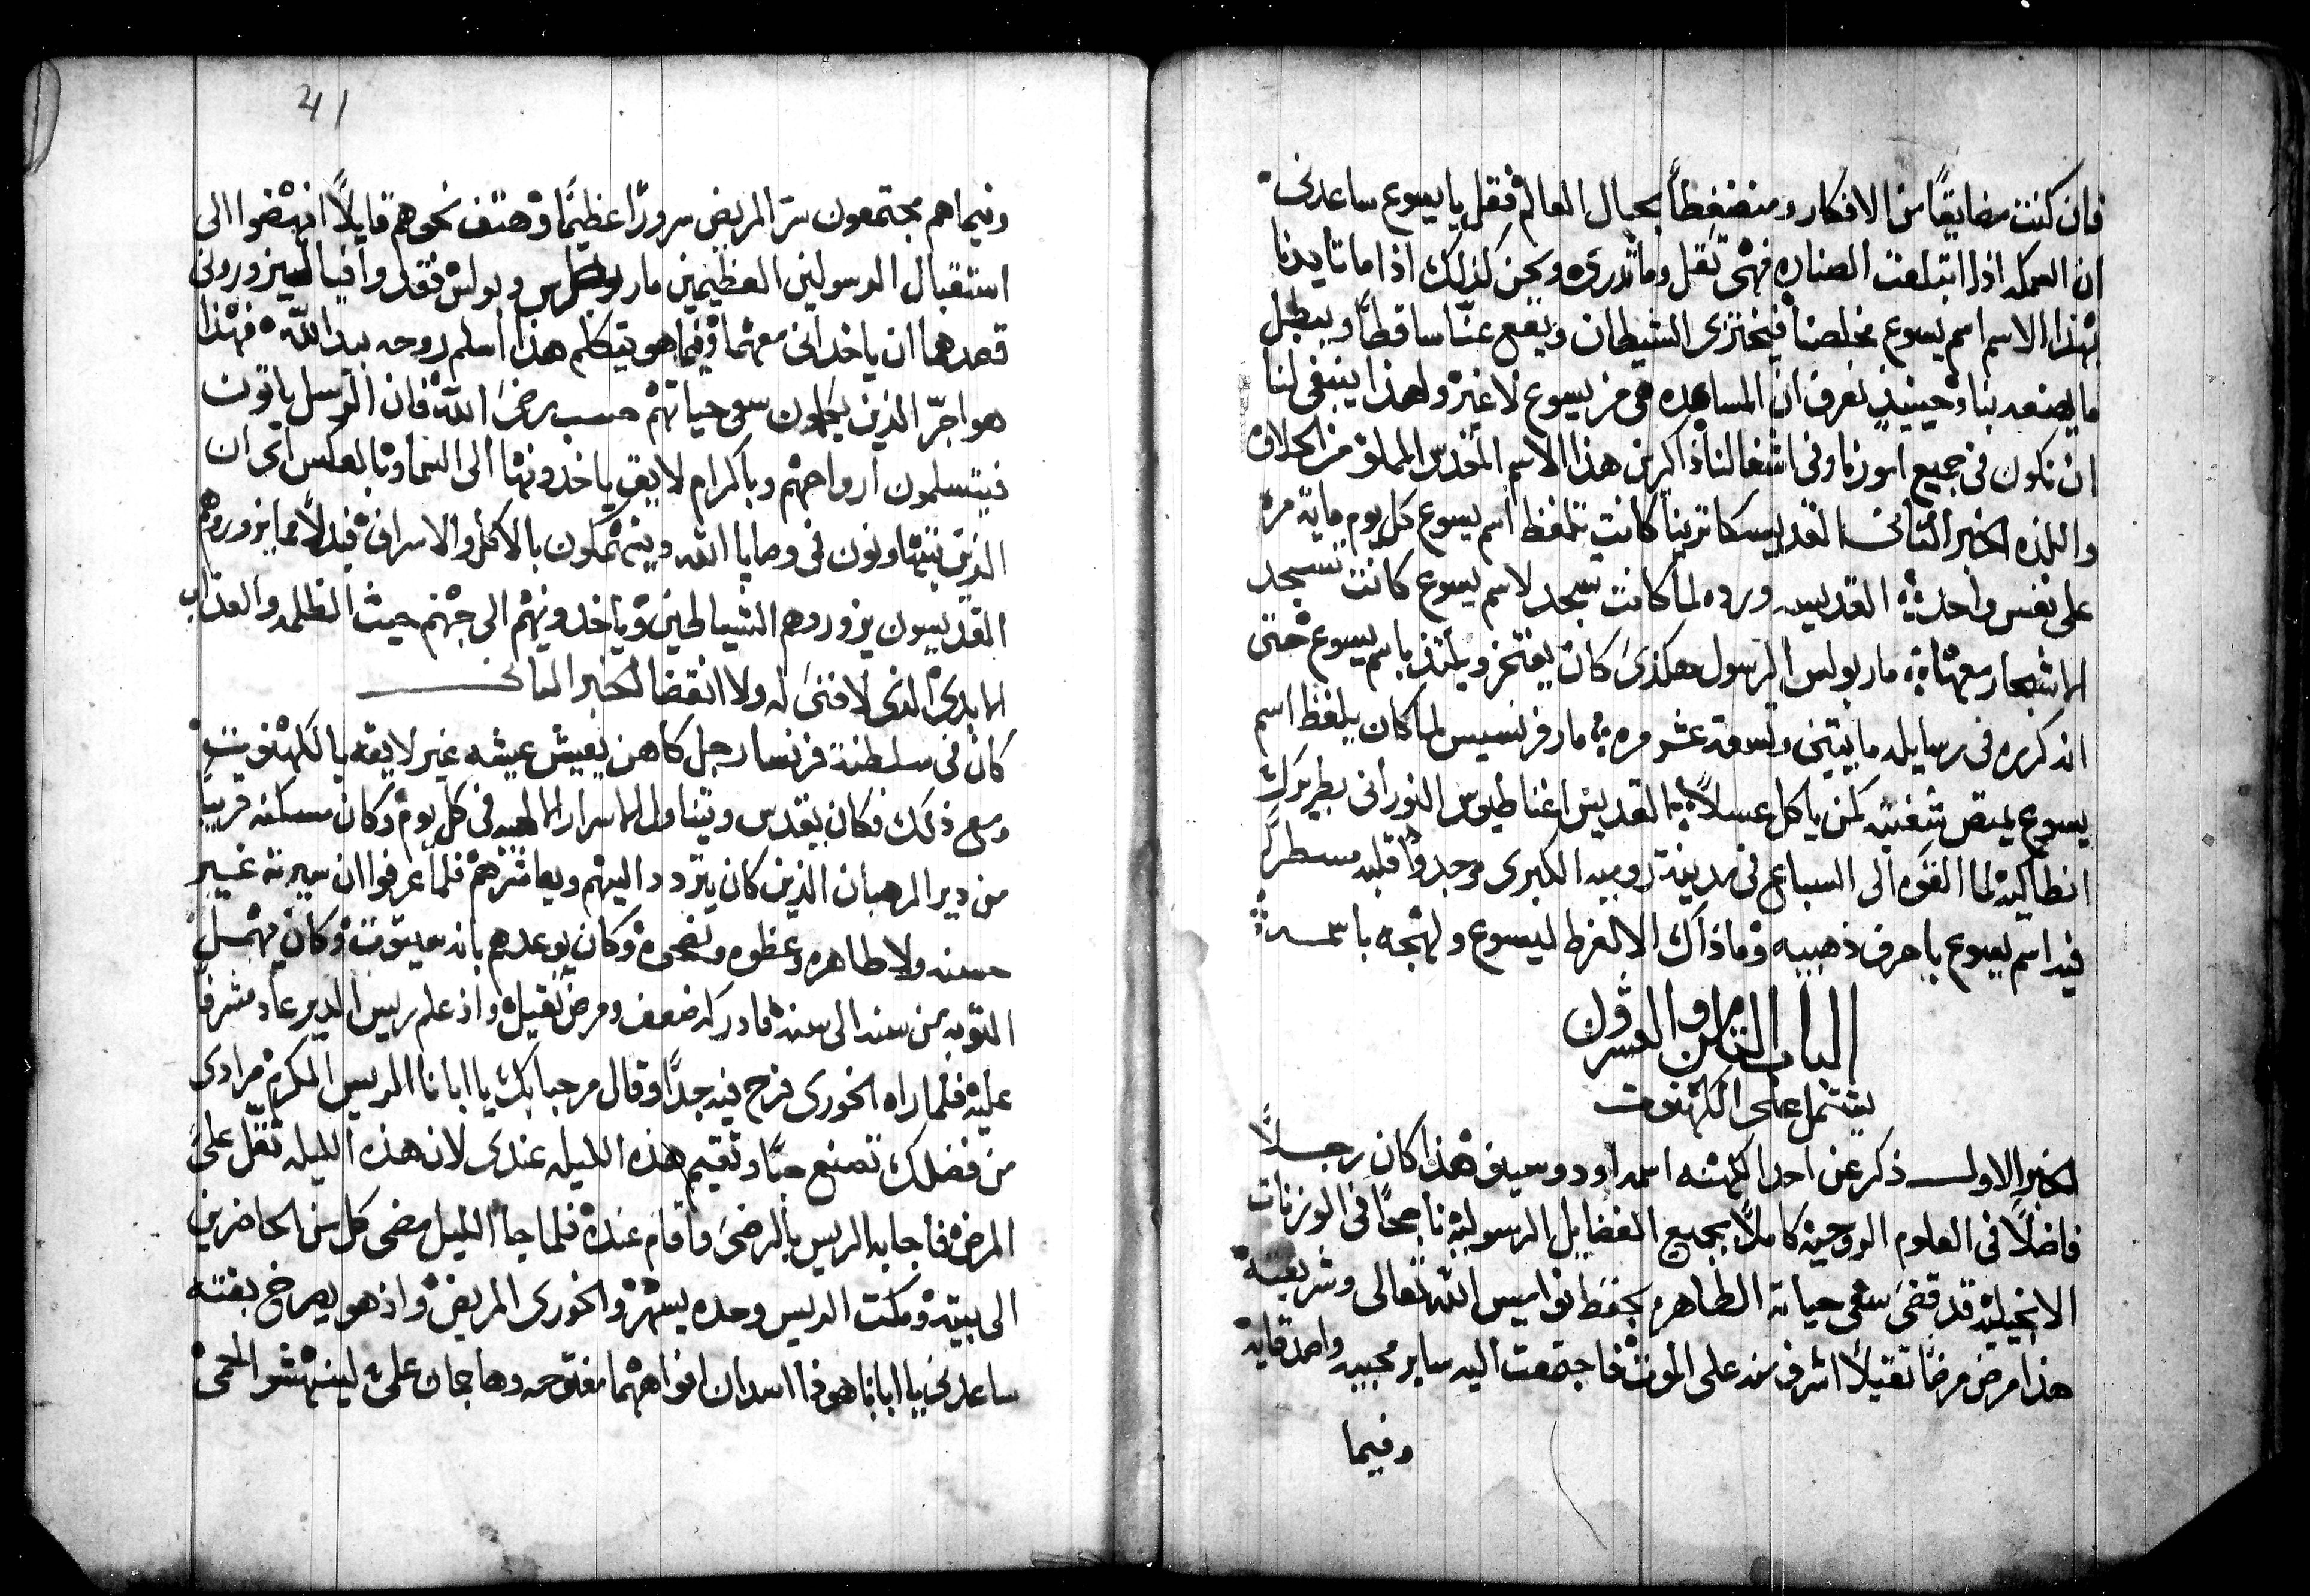 فان كنت مضايقًا من الافكار ومنضغطًا بحبال العالم فقل يا يسوع ساعدنى
ان السمكه اذا ابتلعت الصناره فهى تقل وما تدرى ونحن كذلك اذا ما تايدنا
بهذا الاسم اسم يسوع مخلصنا فيختزى الشيطان ويقع عنّا ساقطًا ويبطل
ما يصنعه بنا وحينيذٍ نعرف ان المساعده هى من يسوع لا غير ولهذا ينبغى لنا
ان نكون فى جميع امورنا وفى اشغالنا ذاكرين هذا الاسم المقدس المملو من الحلاوه
واللذه الخبر الثانى القديسه كاترينا كانت تلفظ اسم يسوع كل يوم مايه مره
على نفس واحده القديسه ورده لما كانت تسجد لاسم يسوع كانت تسجد
الاشجار معها مار بولس الرسول هكذى كان يفتخر ويلتذ باسم يسوع حتى
انه كرره فى رسايله مايتين وتسعة عشر مره مار فرنسيس لما كان يلفظ اسم
يسوع يمتص شفتيه كمن ياكل عسلاً القديس اغناطيوس النورانى بطريرك
انطاكيه لما القوه الى السباع فى مدينة روميه الكبرى وجدوا قلبه مسطرًا
فيه اسم يسوع باحرف ذهبيه وما ذاك الا لفرط ليسوع ولهجه باسمه
الباب الثامن والعشرون
يشتمل على الكهنوت
الخبر الاول ذكر عن احد الكهنه اسمه اودوسيف هذا كان رجلاً
فاضلاً فى العلوم الروحيه كاملاً بجميع الفضايل الرسوليه ناجحًا فى الوزنات
الانجيليه قد قضى سعى حياته الطاهره بحفظ نواميس الله تعالى وشريعته
هذا مرض مرضًا ثقيلاً اشرف منه على الموت فاجتمعت اليه ساير محبيه واصدقايه
وفيما
41
وفيما هم مجتمعون سرّ المريض سرورًا عظيمًا وهتف نحوهم قايلاً انهضوا الى
استقبال الرسولين العظيمين مار بطرس وبولس فقد وافيا ليزورونى
قصدهما ان ياخدانى معهما وفيما هو يتكلم هذا اسلم روحه بيد الله فهذا
هو اجرّ الذين يكملون سعى حياتهم حسب مرضى الله فان الرسل ياتون
فيتسلمون ارواحهم وباكرام لايق ياخدونها الى السما وبالعكس اى ان
الذين يتهاونون فى وصايا الله وينهمكون بالاكل والاسراف فبدلاً مما يزوروهم
القديسون يزوروهم الشياطين وياخدونهم الى جهنم حيث الظلمه والعذاب
الابدى الذى لا فنى له ولا انقضا الخبر الثانى
كان فى سلطنة فرنسا رجل كاهن يعيش عيشه غير لايقه بالكهنوت
ومع ذلك فكان يقدس ويتناول الاسرار الالهيه فى كل يوم وكان مسكنه قريبًا
من دير الرهبان الذين كان يتردد اليهم ويعاشرهم فلما عرفوا ان سيرته غير
حسنه ولا طاهره وعظوه ونصحوه وكان يوعدهم بانه سيتوب وكان يهمل
التوبه من سنه الى سنه فادركه ضعف ومرض ثقيل واذ علم ريس الدير عاد مشرفًا
عليه فلما راه الخورى فرح فيه جدًا وقال مرحبا بك يا ابانا الريس المكرم مرادى
من فضلك تصنع حبًا وتقيم هذه الليله عندى لان هذه الليله ثقل علىّ
المرض فاجابه الريس بالرضى واقام عنده فلما جا الليل مضى كل من الحاضرين
الى بيته ومكث الريس وحده يسهر والخورى المريض واذ هو يصرخ بغته
ساعدنى يا ابانا هوذا اسدان افواههما مفتوحه وهاجمان علىّ لينهشو لحمى